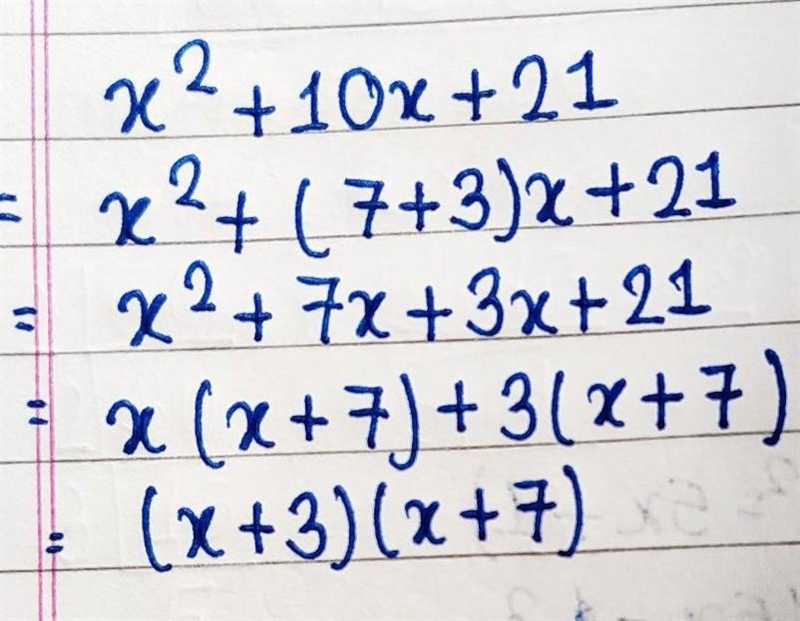 x² + 10x + 21
= x² + (7+3)x + 21
= x² + 7x + 3x + 21
= x(x+7) + 3(x+7)
= (x+3)(x+7)